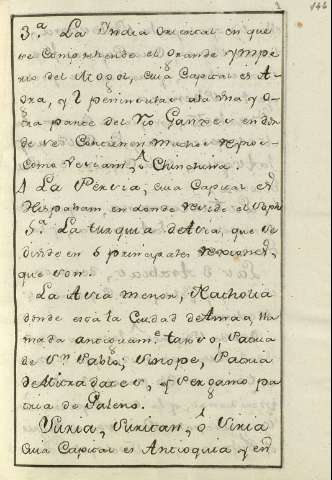 146
3.ª La Yndia Oriental en que
se Comprehende el Grande ymper
rio del Mogol, cuia Capital es A-
gra, y 2 peninsulas ala vna y o-
tra parte del Rio Ganges en don
de se Contienen muchos reynos
Como Versiam, ô Chinchina.
4 La Persia, cuia Capital es
Hispaham, en donde reside el Sophi
5.ª La turquia de Asia, que se
divide en 6 principales regiones,
que son.
La Asia menor, Natholia
donde está la Ciudad de Amasa, lla
mada antiquam.e tarso, Patria
de S.n Pablo; Sinope, Patria
de Mitradates, y Pergamo pa
tria de Galeno.
Suria, Suristan, ô Siria
Cuia Capital es Antioquia y en